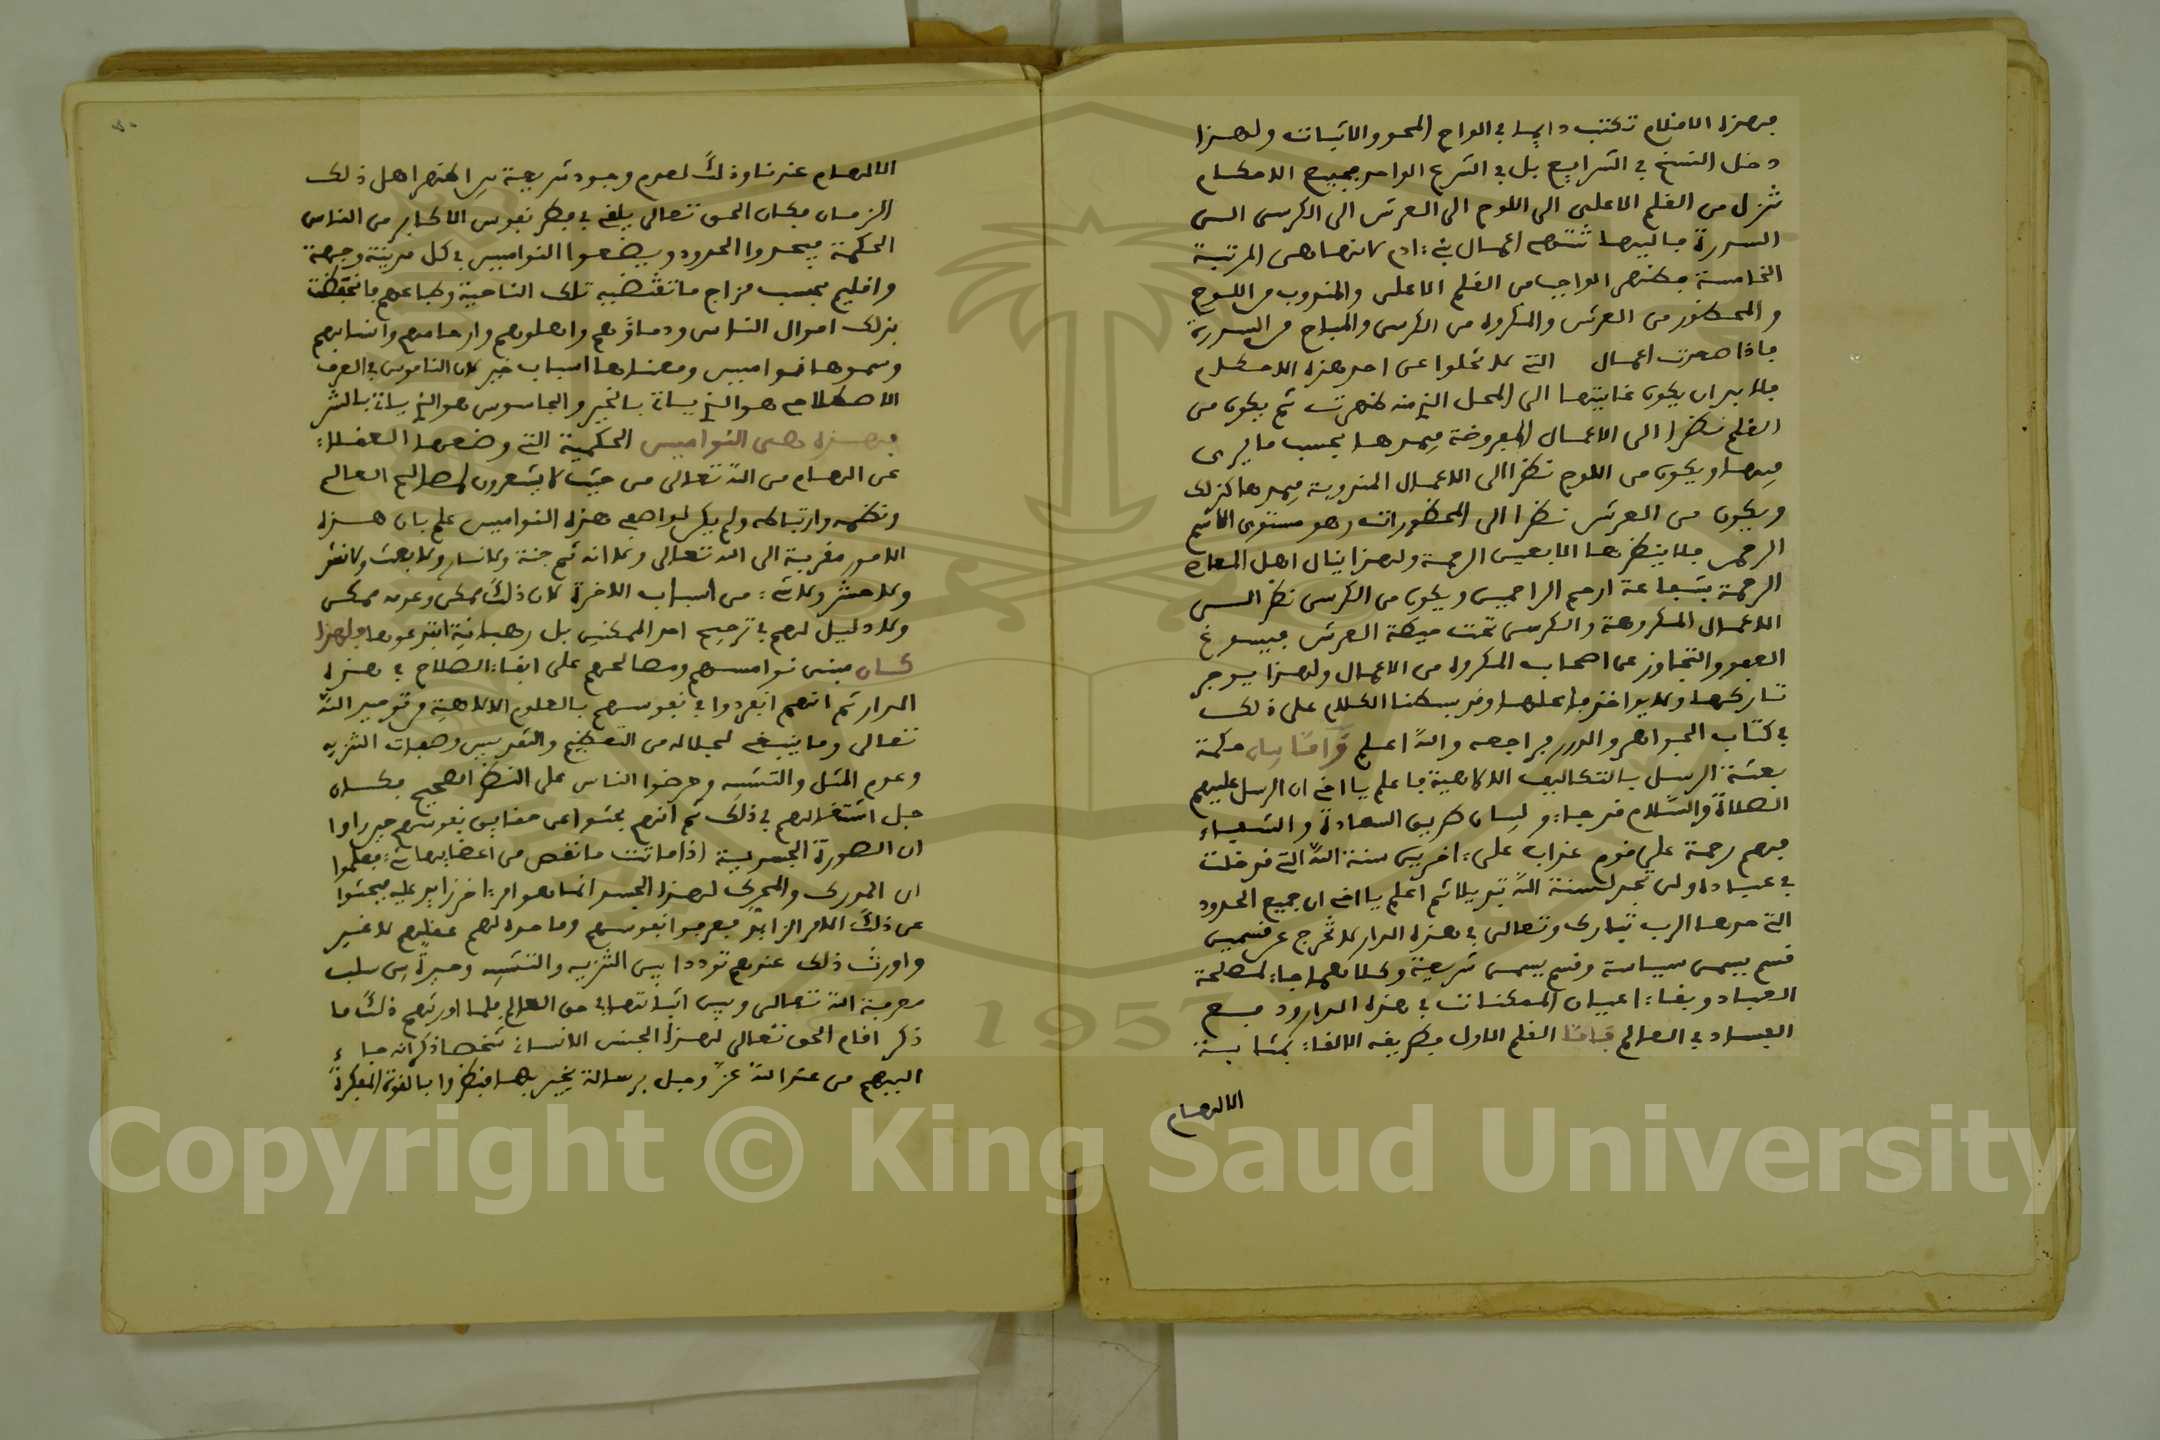 فهذه الاقلام تكتب دايما في الواح المحو والاثبات ولهذا
دخل النسخ في الشرايع بل في الشرع الواحد فجميع الاحكام
تنزل من القلم الاعلى الى اللوح الى العرش الى الكرسي الى
السدرة فاليها تنتهي اعمال بني ادم لانها هي المرتبة
الخامسة فظهر الواجب من القلم الاعلى والمندوب من اللوح
والمحظور من العرش والمكروه من الكرسي والمباح من السدرة
فاذا صعدت اعمال التي لا تخلوا عن احد هذه الاحكام
فلا بد ان يكون غايتها الى المحل الذي منه ظهرت ثم يكون من
القلم نظرا الى الاعمال المفروضة فيمدها بحسب ما يرى
فيها ويكون من اللوح نظرا الى الاعمال المندوبة فيمدها كذلك
ويكون من العرش نظرا الى المحظورات وهو مستوى الاسم
الرحمن فلا ينظرها الا بعين الرحمة ولهذا ينال اهل المعاد
الرحمة بشفاعة ارحم الراحمين ويكون من الكرسي نظر الى
الاعمال المكروهة والكرسي تحت حيطة العرش فيسرع
العفو والتجاوز عن اصحاب المكروه من الاعمال ولهذا يوجر
تاركها ولا يواخذ فاعلها وقد بسطنا الكلام على ذلك
في كتاب الجواهر والدرر فراجعه والله اعلم واما بيان حكمة
بعثة الرسل بالتكاليف الالاهية فاعلم يا اخي ان الرسل عليهم
الصلاة والسلام قد جاء ولبيان طريق السعادة والشقاء
فهم رحمة على قوم عذاب على اخرين سنة الله التي قد خلت
في عباده ولن تجد لسنة الله تبديلا ثم اعلم يا اخي ان جميع الحدود
التي حدها الرب تبارك وتعالى في هذه الدار لا تخرج عن قسمين
قسم يسمى سياسة وقسم يسمى شريعة وكلاهما جاء لمصلحة
العباد وبقاء اعيان الممكنات في هذه الدار ودفع
الفساد في العالم فاما القسم الاول فطريقه الالقاء بمثابة
الالهام
الالهام عندنا وذلك لعدم وجود شريعة بين اظهر اهل ذلك
الزمان فكان الحق تعالى يلقي في فطر نفوس الاكابر من الناس
الحكمة فيحدوا الحدود ويضعوا النواميس في كل مدينة وجهة
واقليم بحسب مزاج ما تقتضيه تلك الناحية وطباعهم فانحفظت
بذلك اموال الناس ودماؤهم واهلوهم وارحامهم وانسابهم
وسموها نواميس ومعناها اسباب خير لان الناموس في العرف
الاصطلاح هو الذي ياتي بالخير والجاسوس هو الذي ياتي بالشر
فهذه هي النواميس الحكمية التي وضعها العقلاء
عن الهام من الله تعالى من حيث لا يشعرون لمصالح العالم
ونظمه وارتباطه ولم يكن لواضعي هذه النواميس علم بان هذه
الامور مقربة الى الله تعالى ولا انه ثم جنة ولا نار ولا بعث ولا نشر
ولا حشر ولا شيء من اسباب الاخرة لان ذلك ممكن وعدمه ممكن
ولا دليل لهم في ترجيح احد الممكنين بل رهبانية ابتدعوها ولهذا
كان مبنى نواميسهم ومصالحهم على ابقاء الصلاح في هذه
الدار ثم انهم انفردوا في نفوسهم بالعلوم الالاهية من توحيد الله
تعالى وما ينبغي لجلاله من التعظيم والتقديس وصفات التنزيه
وعدم المثل والتشبيه وحرضوا الناس على النظر الصحيح فكان
جل اشتغالهم في ذلك ثم انهم بحثوا عن حقايق نفوسهم حين راوا
ان الصورة الجسدية اذا ماتت ما نقص من اعضايها شيء فعلموا
ان المدرك والمحرك لهذا الجسد انما هو امر اخر زايد عليه فبحثوا
عن ذلك الامر الزايد فعرفوا نفوسهم وما حده لهم عقلهم لا غير
واورث ذلك عندهم ترددا بين التنزيه والتشبيه وحيرة بين سلب
معرفة الله تعالى وبين اثباتها في حق العالم فلما اورثهم ذلك ما
ذكر اقام الحق تعالى لهذا الجنس الانساني شخصا ذكر انه جاء
اليهم من عند الله عز وجل برسالة يخبر بها فنظروا بالقوة المفكرة
Copyright © King Saud University
1957